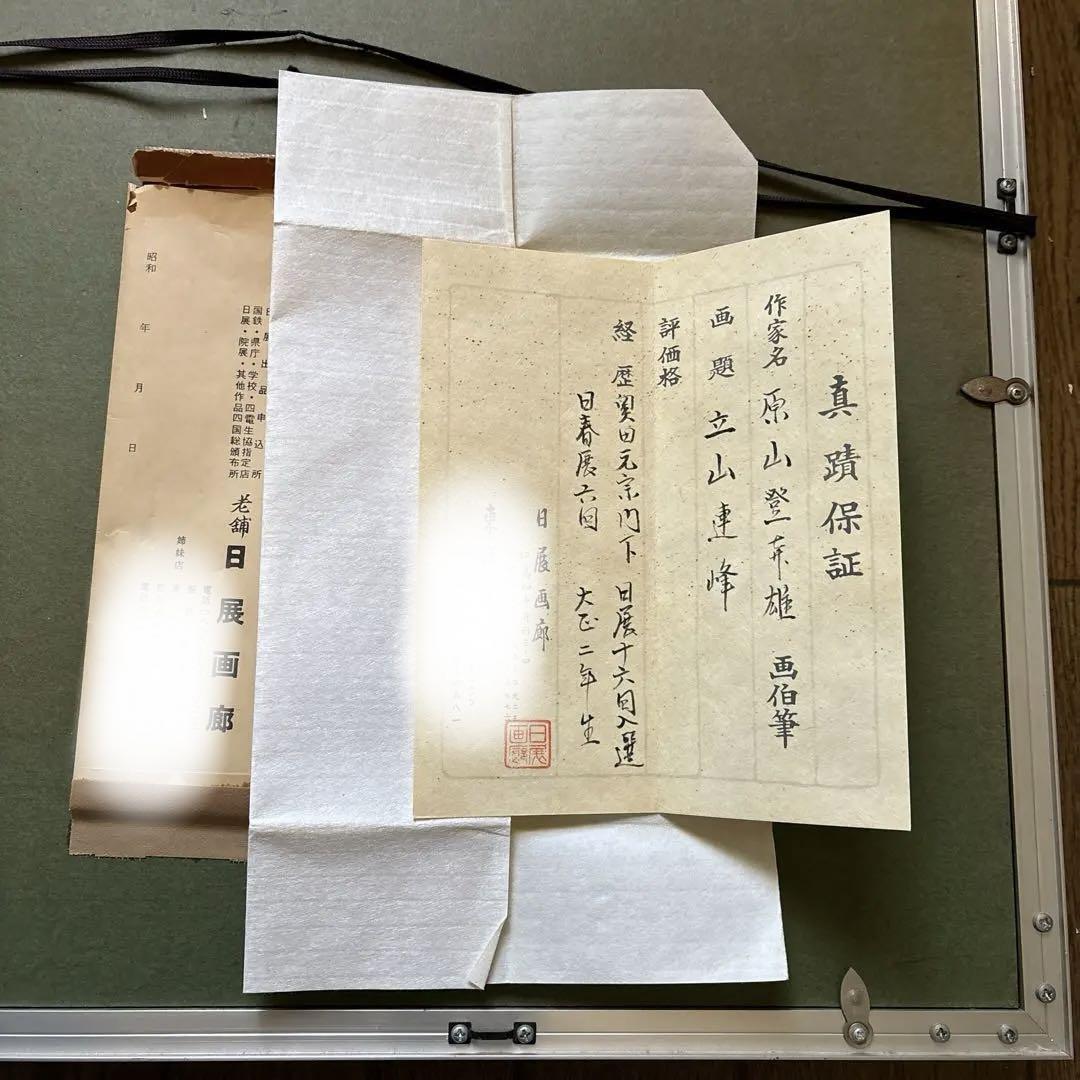 真蹟保証
作家名 原山登年雄 画伯筆
画題 立山連峰
評価格
経歴 奥田元宗門下 日展十六回入選
日春展六回 大正二年生
日展画廊
日展画廊
国鉄・県庁・学校・四電生協指定店
日展・院展・其他作品四国総頒布所
老舗 日展画廊
姉妹店
昭和 年 月 日